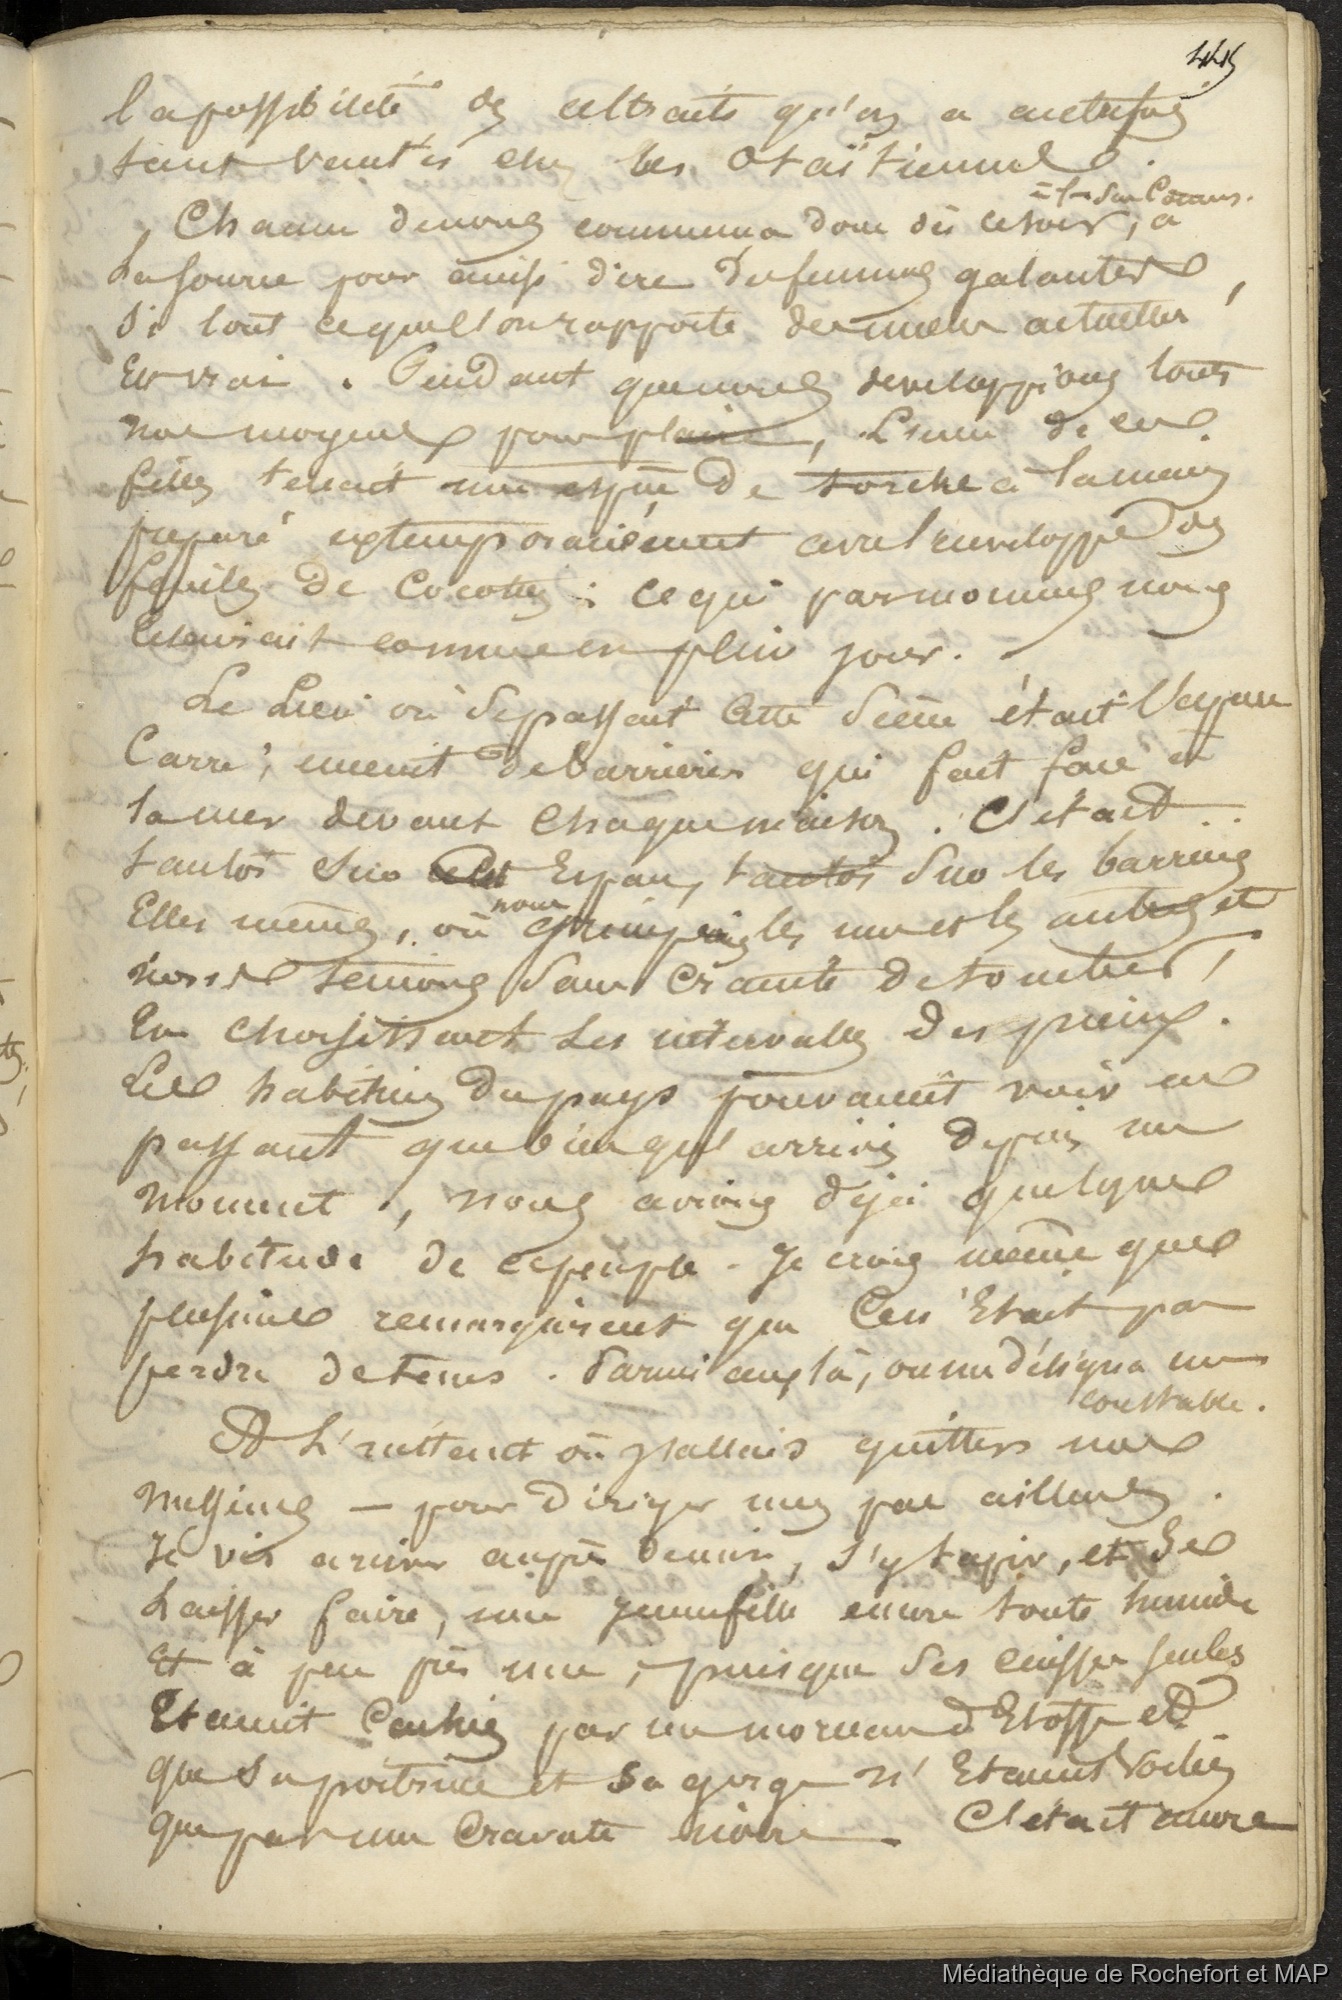 445
la possibilité des attraits qu'on a autrefois
tant vantés chez les Otaïtiennes.
Chacun de nous commença donc dès ce soir, à
la source pour ainsi dire des femmes galantes,
si tout ce que l'on rapporte des mœurs actuelles
est vrai. Pendant que nous développions touts
nos moyens pour plaire, l'une de ces
filles tenait une espèce de torche à la main
preparé extemporanément avec l'enveloppe des
feuilles de Cocotiers ; ce qui par moments nous
éclairait comme en plein jour.
Le Lieu où se passait cette scène était l'espace
Carré, muni de barrières qui fait face à
la mer devant chaque maison. C'était
tantôt sur cet Espace, tantôt sur les barrières
Elles mêmes, où nous grimpions les uns et les autres et
nous tenions sans crainte de tomber,
En choisissant les intervalles des pieux.
Les habitués du pays pouvaient voir en
passant que bien qu'arrivés depuis un
moment, nous avions déjà quelques
habitude de ce peuple. Je crois même que
plusieurs remarquèrent que Ce n'Etait pas
perdre de tems. Parmi ceux là, on me désigna un
constable.
A L'instant où j'allais quitter nos
messieurs — pour diriger mes pas ailleurs.
Je vis arriver auprès de moi, s'y tapir, et se
laisser faire, une jeune fille encore toute humide
Et à peu près nue, puisque ses cuisses seules
Etaient Cachées par un morceau d'Etoffe et
que sa poitrine et sa gorge n'Etaient Voilées
que par une Cravate noire. C'était encore